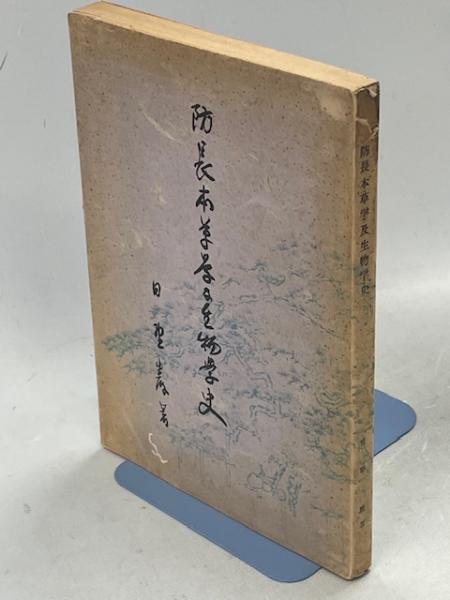 防長本草学及生物学史
日野巌著
防長本草学及生物学史